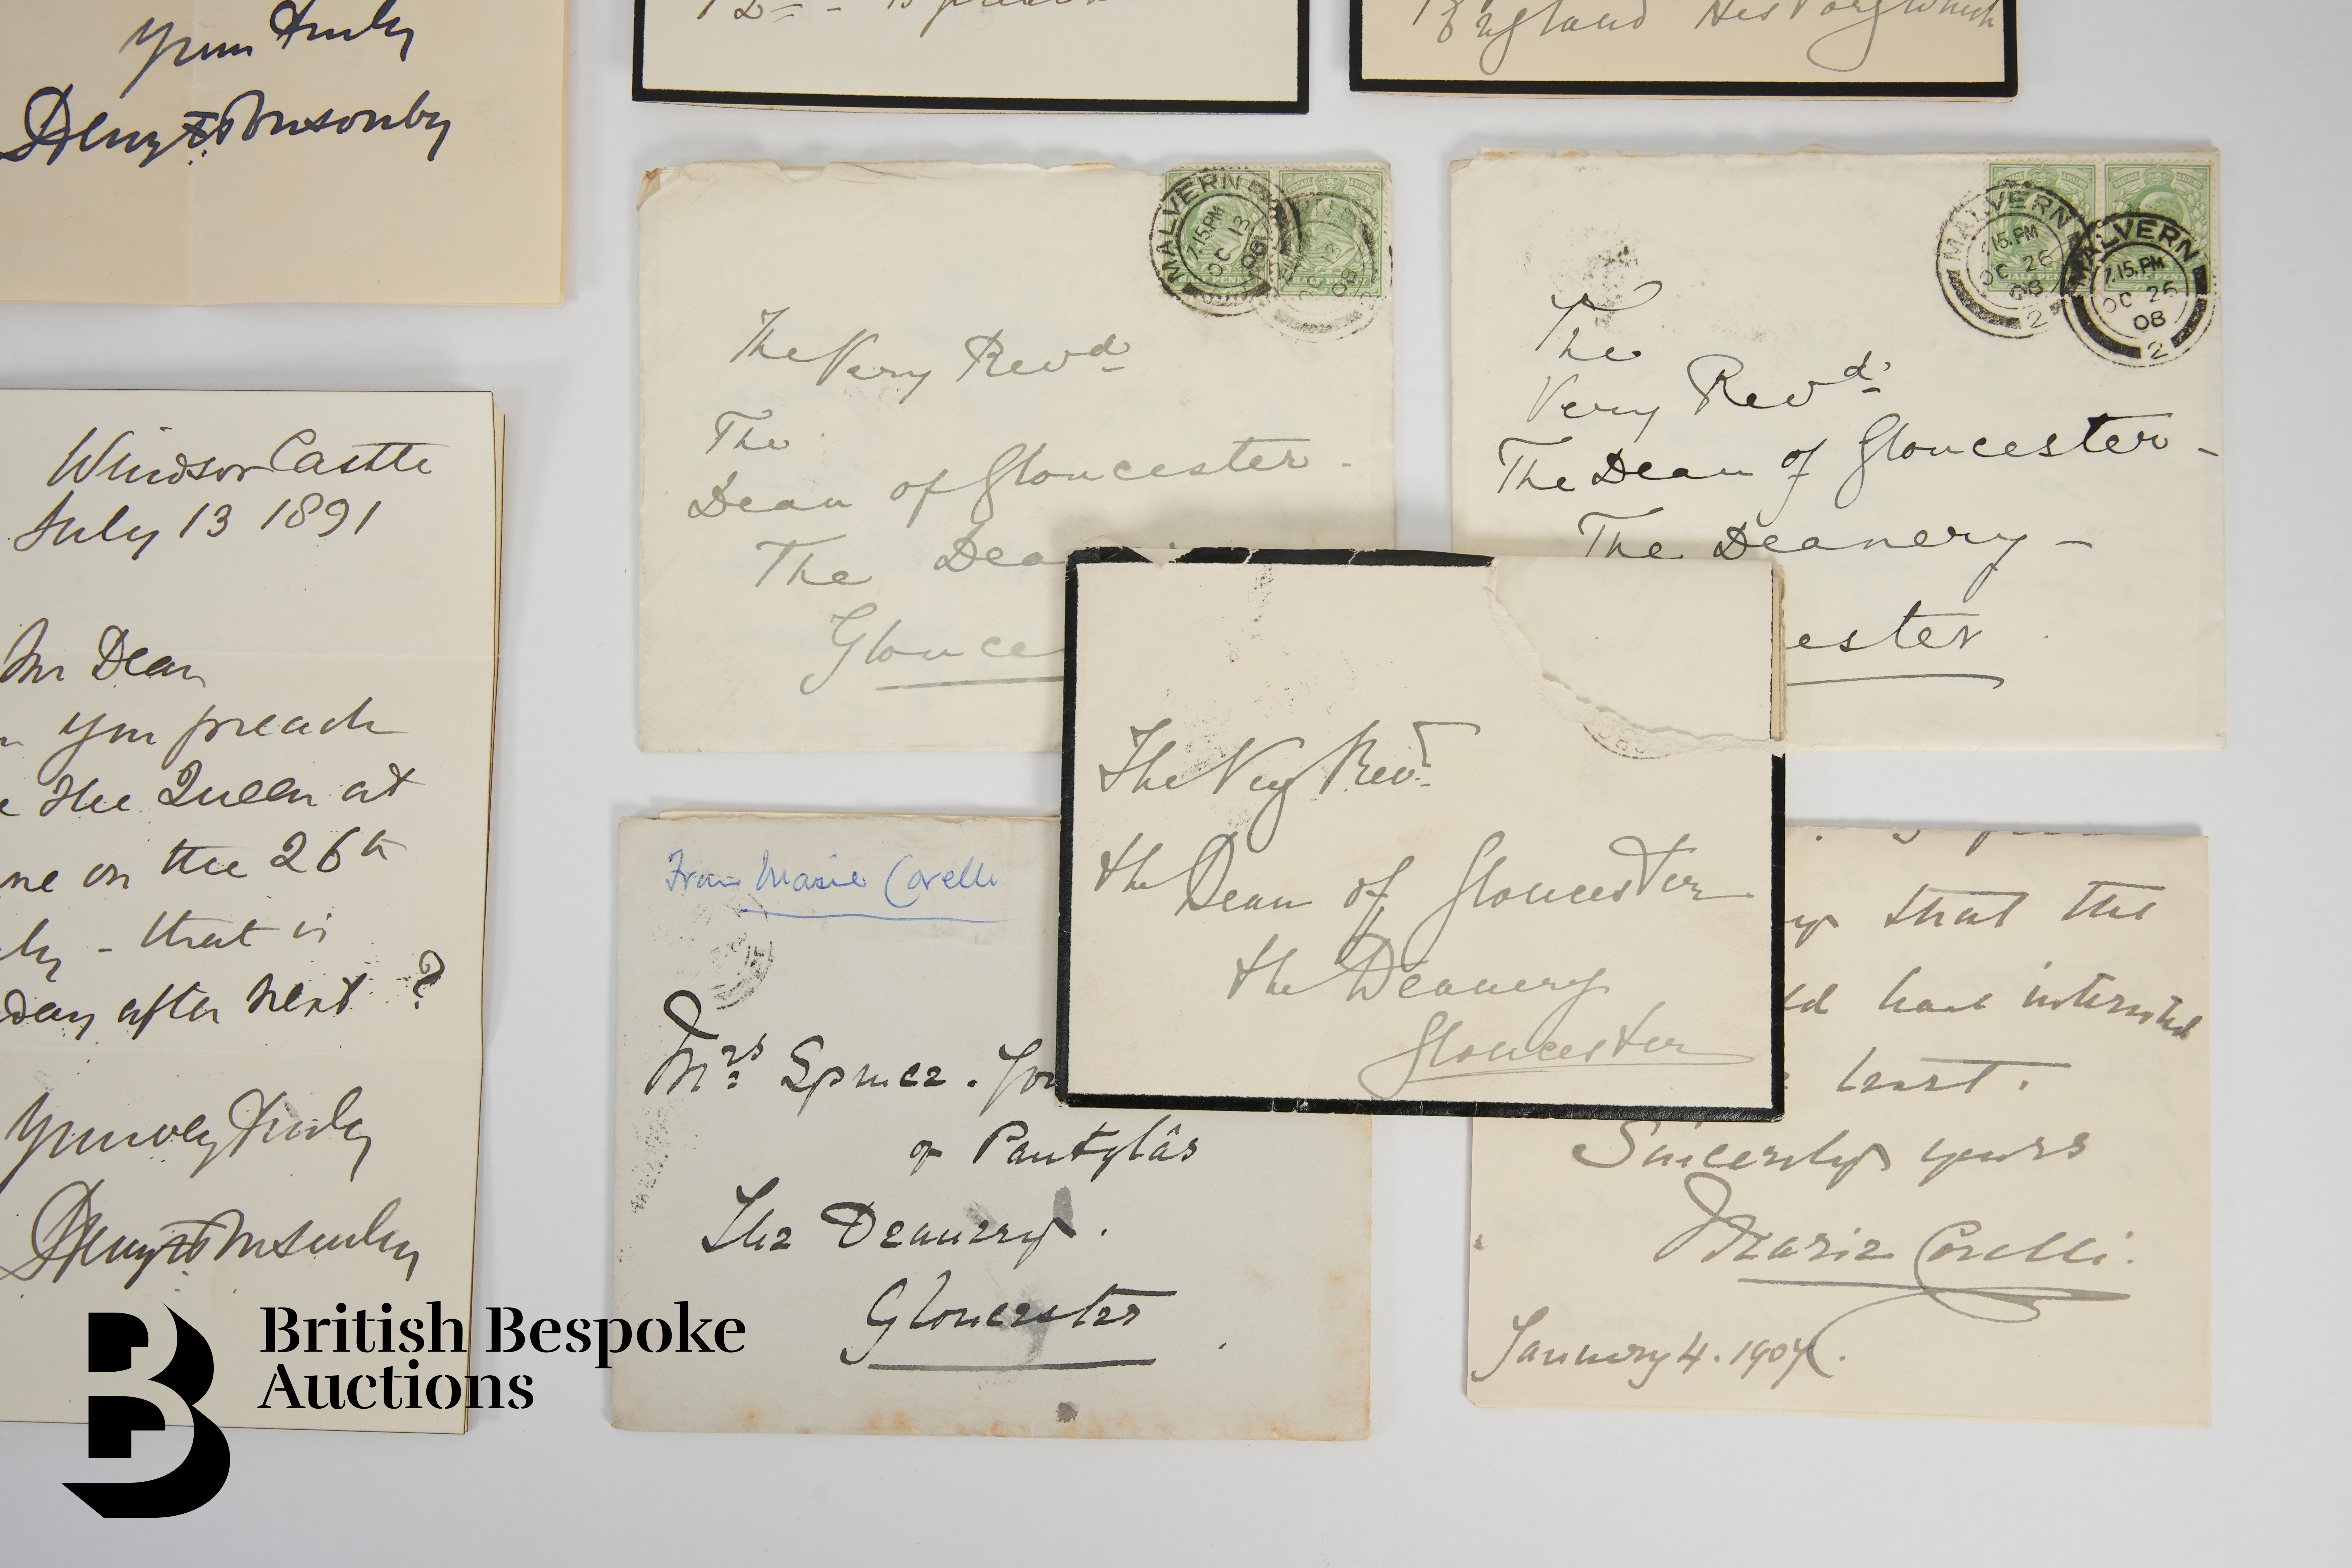 Yours truly
Henry F Ponsonby
England
Windsor Castle
July 13 1891
Mr Dean
you preach
the Queen at
on the 26th
that is
day after next ?
Yours very truly
Henry F Ponsonby
MALVERN
7.15.PM
OC 13
08
MALVERN
OC 13
08
The Very Revd
The
Dean of Gloucester.
The Dea
Glouce
MALVERN
7.15.PM
OC 26
08
2
MALVERN
7.15.PM
OC 26
08
2
HALF PENNY
The
Very Revd
The Dean of Gloucester -
The Deanery -
ester
The Very Rev.
the Dean of Gloucester
the Deanery
Gloucester
From Marie Corelli
Mrs Spence. Jon
of Pantglâs
The Deanery.
Gloucester
that the
have interested
least.
Sincerely yours
Marie Corelli.
January 4. 1904.
British Bespoke
Auctions